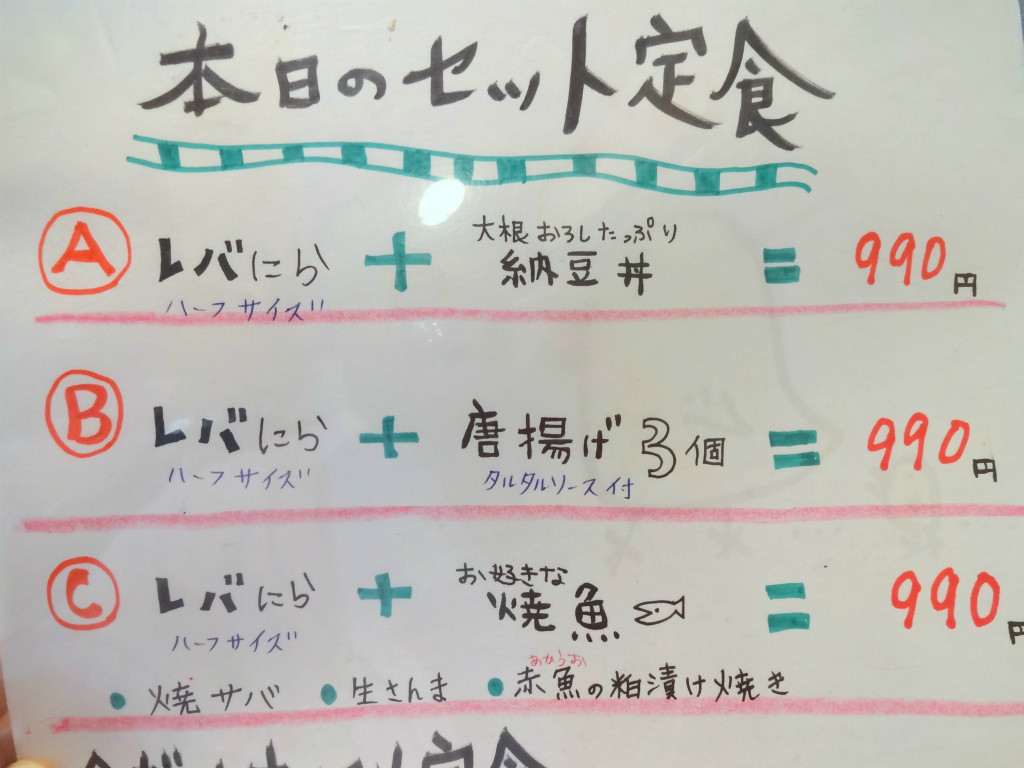 本日のセット定食
A レバにら + 大根おろしたっぷり 納豆丼 = 990円
ハーフサイズ
B レバにら + 唐揚げ3個 = 990円
ハーフサイズ タルタルソース付
C レバにら + お好きな 焼魚 = 990円
ハーフサイズ
・焼サバ ・生さんま ・赤魚の粕漬け焼き
あかうお